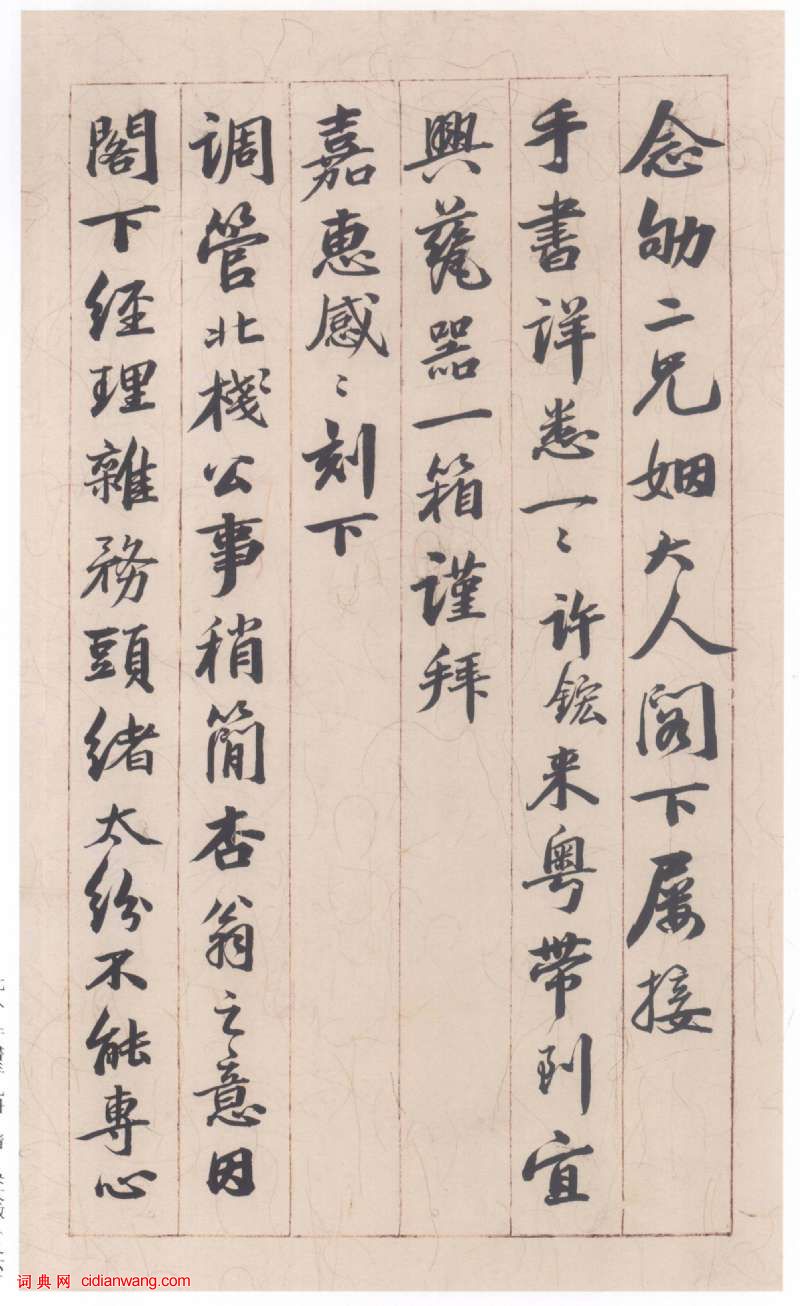 念劬二兄姻大人阁下屡接
手書详悉一〻许鋐来粤带到宜
興甆器一箱谨拜
嘉惠感〻刻下
调管北棧公事稍简杏翁之意因
閣下经理雜務頭緒太纷不能専心
词典网 cidianwang.com